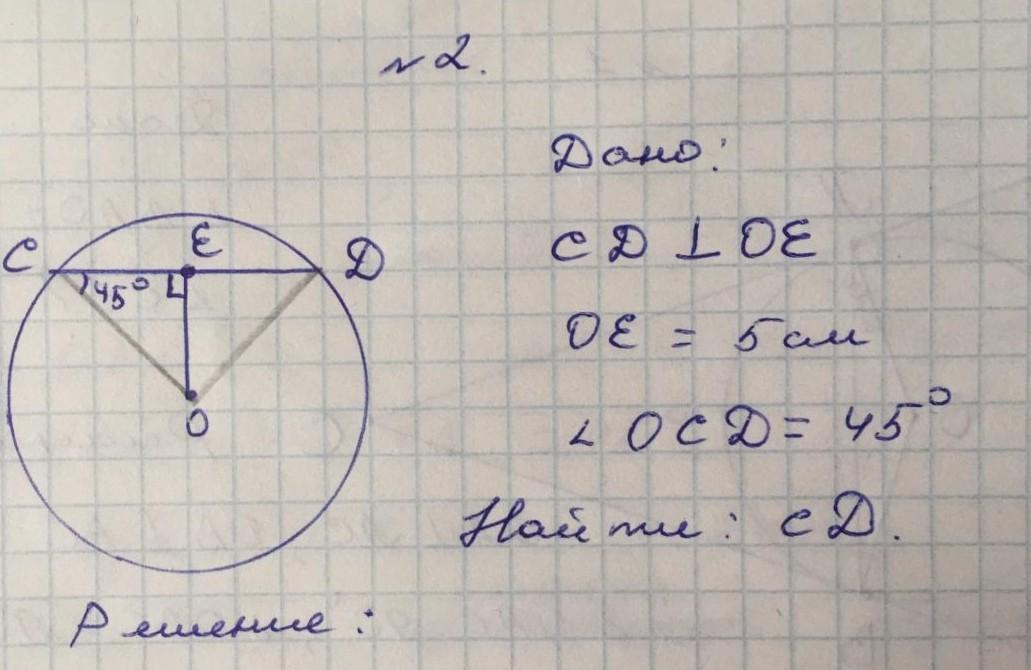 №2.
Дано:
CD ⊥ OE
OE = 5 см
∠ OCD = 45°
Найти: CD.
C E D
45°
O
Решение: